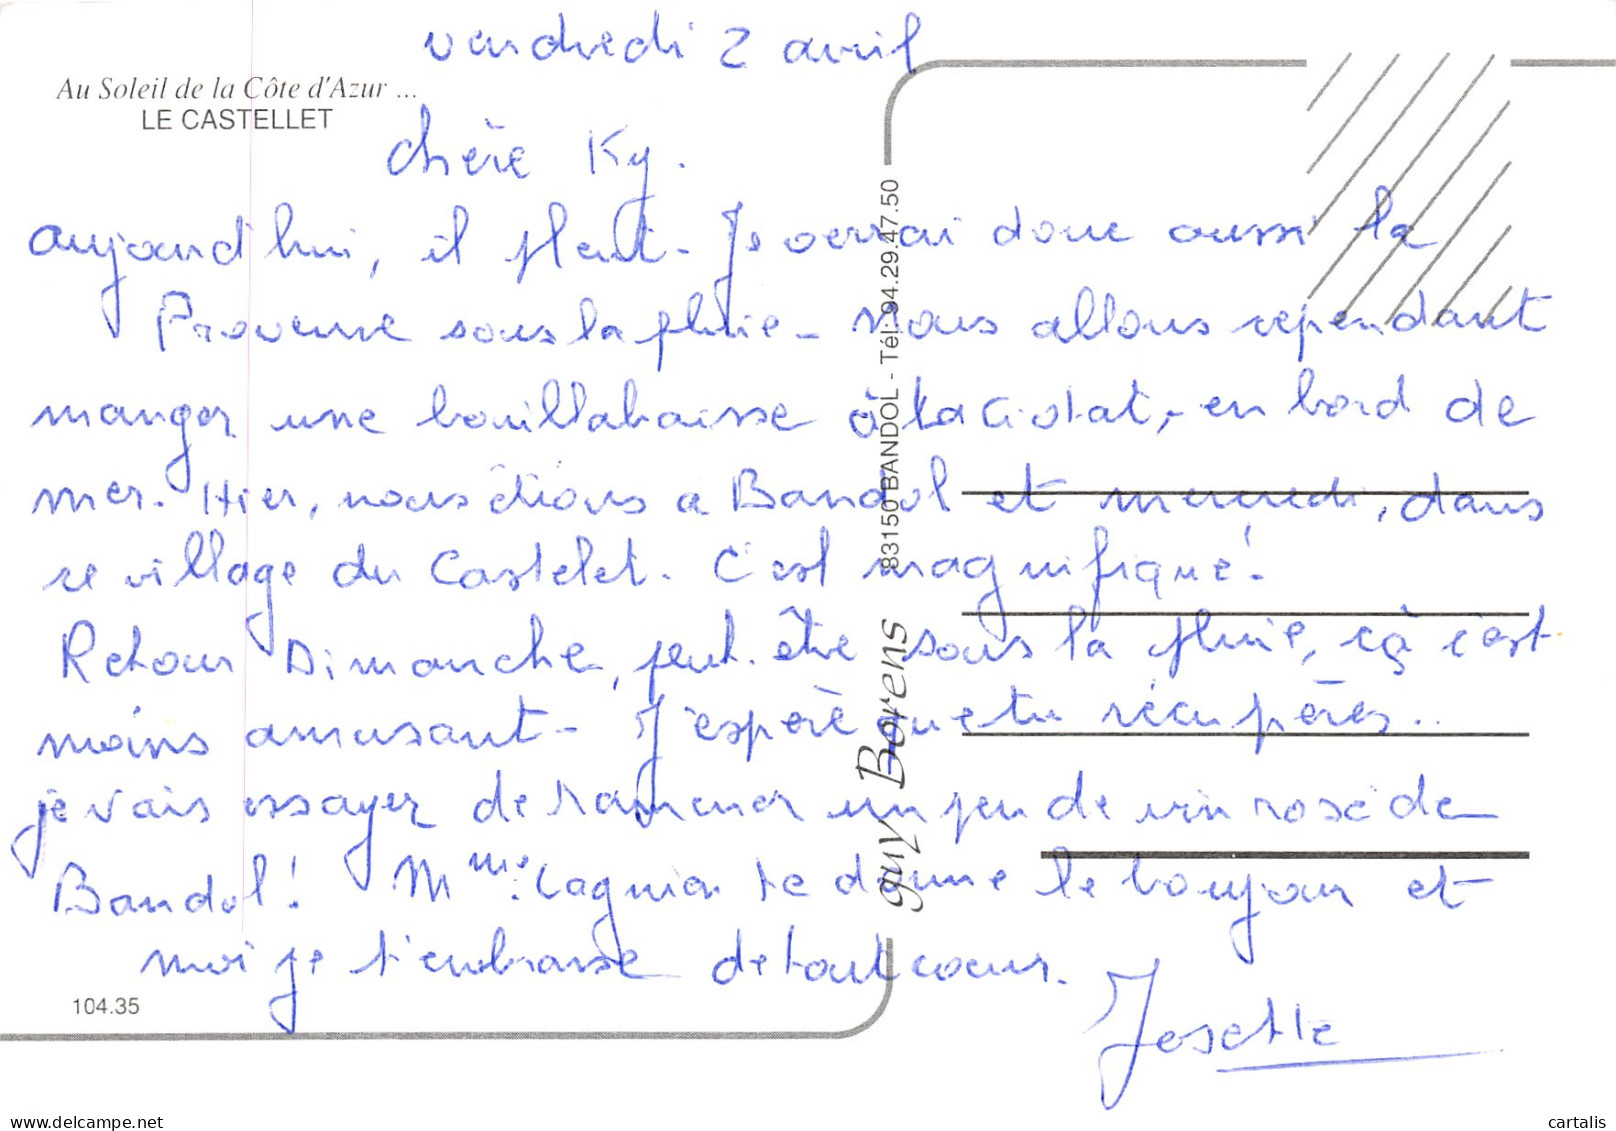 vendredi 2 avril
Au Soleil de la Côte d'Azur ...
LE CASTELLET
Chère Ky.
aujourd'hui, il pleut - Je verrai donc aussi la
Provence sous la pluie - Nous allons cependant
manger une bouillabaisse à La Ciotat, en bord de
mer. Hier, nous étions a Bandol et mercredi, dans
ce village du Castelet. C'est magnifique!
Retour Dimanche, peut-être sous la pluie, çà c'est
moins amusant - J'espère que tu récupères..
je vais essayer de ramener un peu de vin rosé de
Bandol! Mme. Cagnia te donne le bonjour et
moi je t'embrasse de tout coeur.
Josette
104.35
guy Borens 83150 BANDOL - Tél: 94.29.47.50
https://www.delcampe.net
cartalis